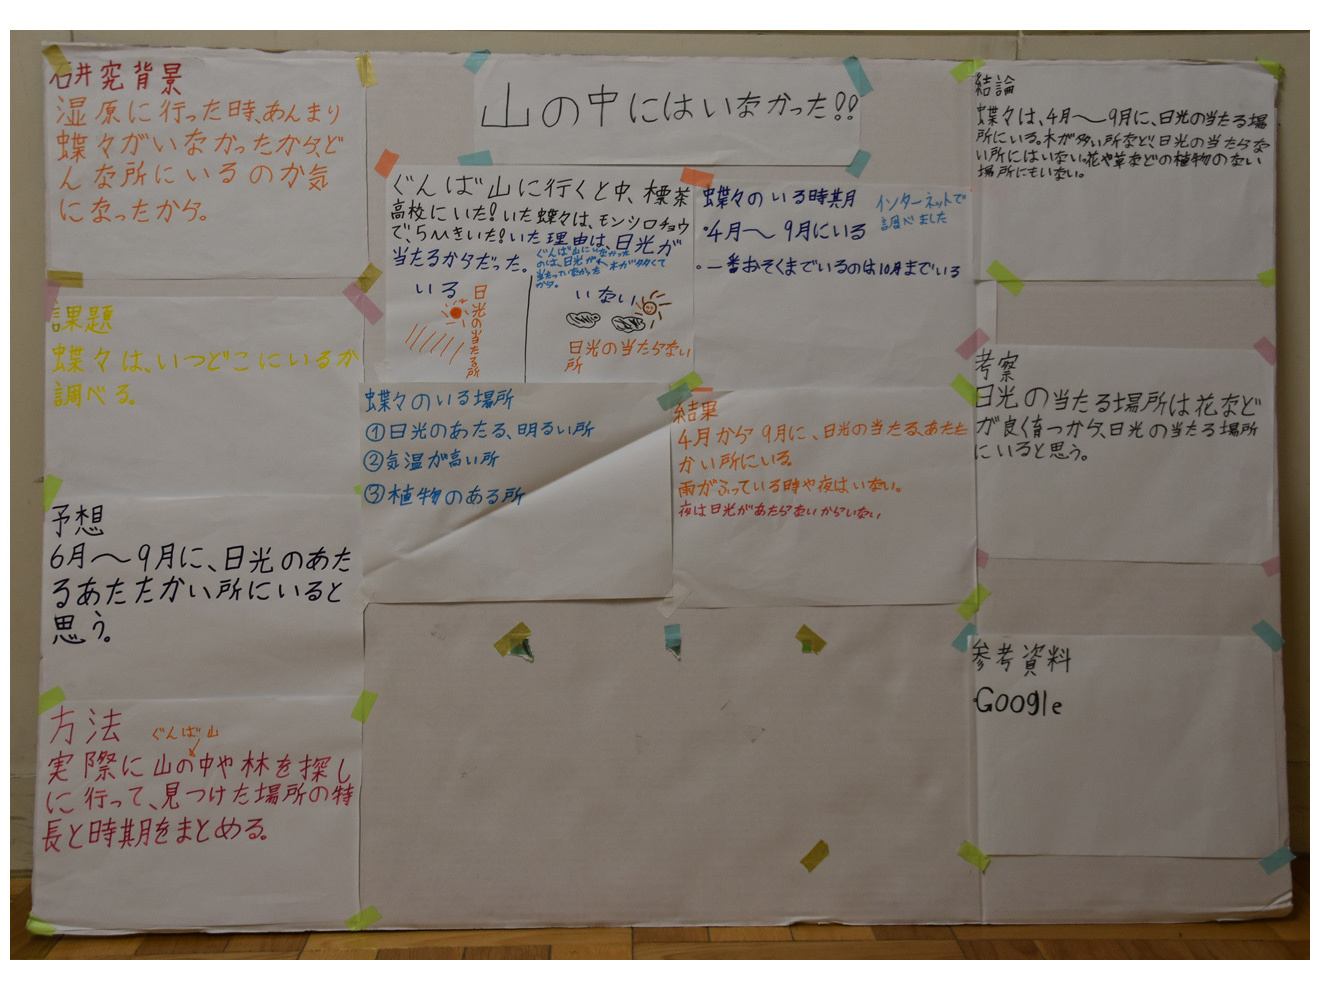 山の中にはいなかった!!
研究背景
湿原に行った時、あんまり
蝶々がいなかったから、ど
んな所にいるのか気
になったから。
課題
蝶々は、いつどこにいるか
調べる。
予想
6月〜9月に、日光のあた
るあたたかい所にいると
思う。
方法
ぐんば山
実際に山の中や林を探し
に行って、見つけた場所の特
長と時期をまとめる。
ぐんば山に行くと中、標茶
高校にいた!いた蝶々は、モンシロチョウ
で、5ひきいた!いた理由は、日光が
当たるからだった。
ぐんば山にいなかった
のは、日光が木が多くて
当たっていなかった
から。
いる
日光の当たる所
いない
日光の当たらない
所
蝶々のいる時期
インターネットで
調べました
・4月〜9月にいる
・一番おそくまでいるのは10月までいる
蝶々のいる場所
①日光のあたる、明るい所
②気温が高い所
③植物のある所
結果
4月から9月に、日光の当たる、あたた
かい所にいる。
雨がふっている時や夜はいない。
夜は日光があたらないからいない
結論
蝶々は、4月〜9月に、日光の当たる場
所にいる。木が多い所など、日光の当たらな
い所にはいない。花や草などの植物のない
場所にもいない。
考察
日光の当たる場所は花など
が良く育つから、日光の当たる場所
にいると思う。
参考資料
Google